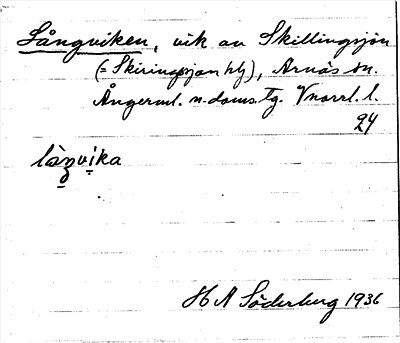 Långviken, vik av Skillingsjön
(= Skiringsjön hlj), Arnäs sn.
Ångerml. n. doms. tg. Vnorrl. l.
24
làŋvika
H A Söderberg 1936